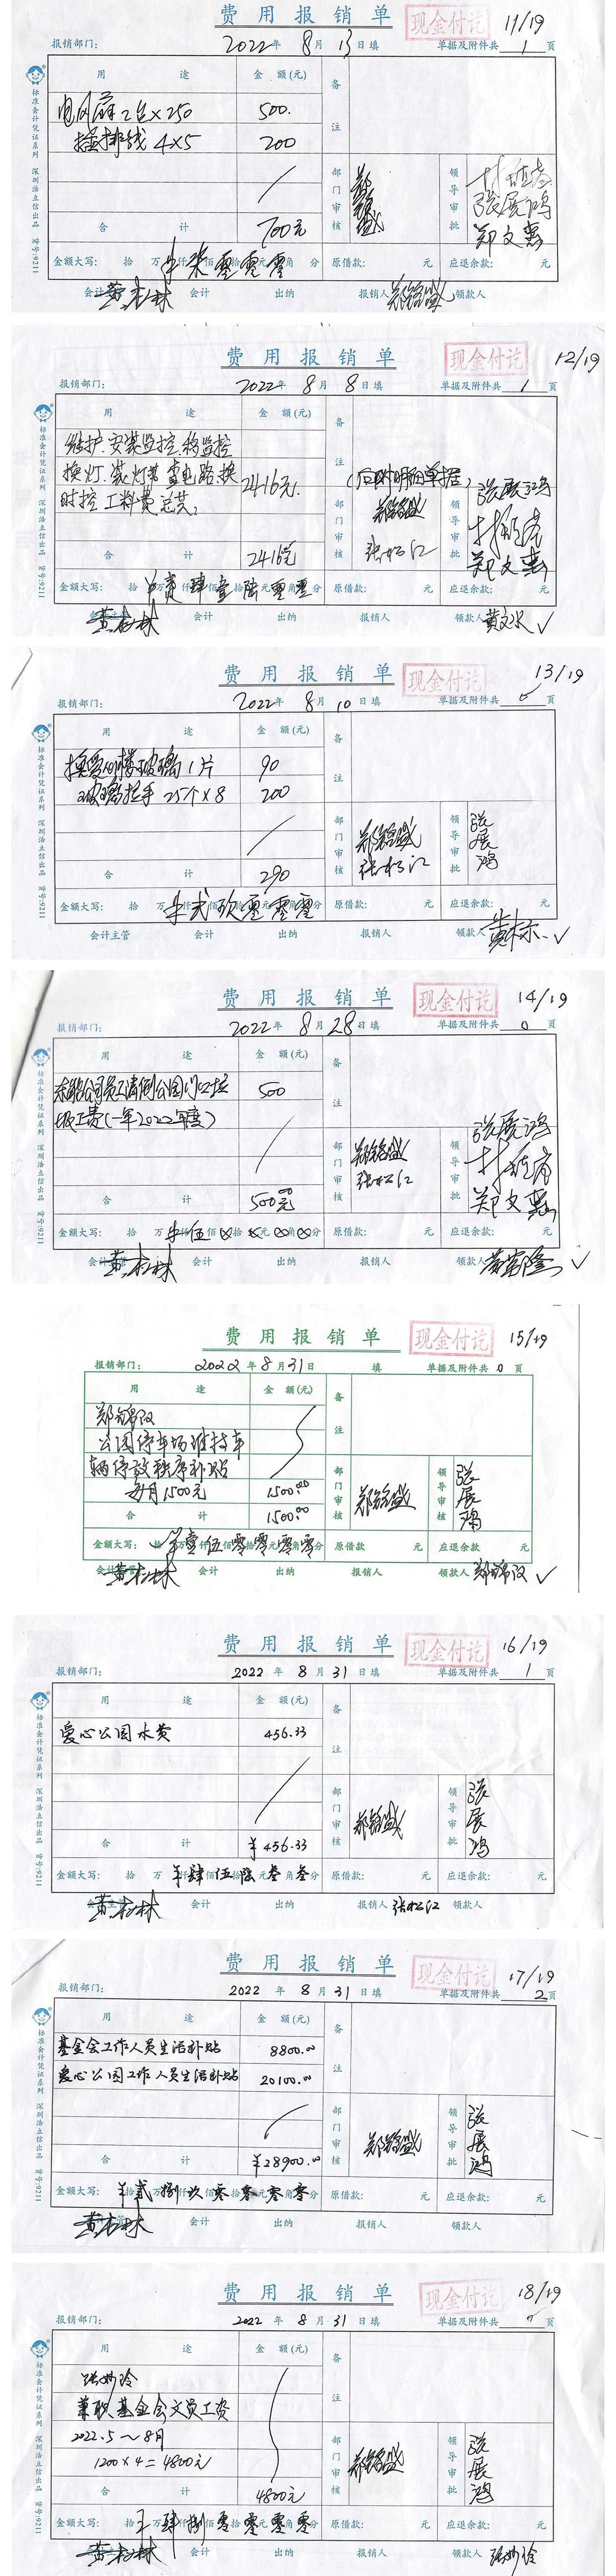 费用报销单
现金付讫
11/19
报销部门： 2022年 8月 13日填 单据及附件共 1 页
用途 金额(元) 备注
电风扇2台×250 500.
插排线 4×5 200
部门审核 领导审批
张展鸿
郑文惠
合计 700元
金额大写： 拾万仟佰拾元角分 柒零零零 原借款： 元 应退余款： 元
会计 出纳 报销人 领款人
标准会计凭证系列 深圳浩立信出品 货号:9211
费用报销单
现金付讫
12/19
报销部门： 2022年 8月 8日填 单据及附件共 1 页
用途 金额(元) 备注
维护.安装监控.移监控
换灯.装灯带 电路.换 2416元.
时控 工料费总共,
(后附明细单据)
部门审核 张松江 领导审批 张展鸿
郑文惠
合计 2416元
金额大写： 拾万仟佰拾元角分 贰肆壹陆零零 原借款： 元 应退余款： 元
会计 出纳 报销人 领款人
标准会计凭证系列 深圳浩立信出品 货号:9211
费用报销单
现金付讫
13/19
报销部门： 2022年 8月 10日填 单据及附件共 0 页
用途 金额(元) 备注
换爱心楼玻璃1片 90
玻璃拉手 25个×8 200
部门审核 张松江 领导审批 张展鸿
合计 290
金额大写： 拾万仟佰拾元角分 贰玖零零零 原借款： 元 应退余款： 元
会计主管 会计 出纳 报销人 领款人
标准会计凭证系列 深圳浩立信出品 货号:9211
费用报销单
现金付讫
14/19
报销部门： 2022年 8月 28日填 单据及附件共 0 页
用途 金额(元) 备注
公司员工清倒公园门口垃 500
圾工费(一年2022年度)
部门审核 张松江 领导审批 张展鸿
郑文惠
合计 500元
金额大写： 拾万仟佰拾元角分 伍 原借款： 元 应退余款： 元
会计 出纳 报销人 领款人
标准会计凭证系列 深圳浩立信出品 货号:9211
费用报销单
现金付讫
15/19
报销部门： 2022年 8月 31日 填 单据及附件共 0 页
用途 金额(元) 备注
公园停车场维持车
辆停放秩序补贴
每月1500元 1500.00
部门审核 领导审核 张展鸿
合计 1500.00
金额大写： 拾万仟佰拾元角分 壹伍零零零零 原借款： 元 应退余款： 元
会计 出纳 报销人 领款人
费用报销单
现金付讫
16/19
报销部门： 2022年 8月 31日填 单据及附件共 1 页
用途 金额(元) 备注
爱心公园水费 456.33
部门审核 领导审批 张展鸿
合计 ¥456.33
金额大写： 拾万仟佰拾元角分 ¥肆伍陆叁叁 原借款： 元 应退余款： 元
会计 出纳 报销人 张松江 领款人
标准会计凭证系列 深圳浩立信出品 货号:9211
费用报销单
现金付讫
17/19
报销部门： 2022年 8月 31日填 单据及附件共 2 页
用途 金额(元) 备注
基金会工作人员生活补贴 8800.00
爱心公园工作人员生活补贴 20100.00
部门审核 领导审批 张展鸿
合计 ¥28900.00
金额大写： 拾万仟佰拾元角分 ¥贰捌玖零零零零 原借款： 元 应退余款： 元
会计 出纳 报销人 领款人
标准会计凭证系列 深圳浩立信出品 货号:9211
费用报销单
现金付讫
18/19
报销部门： 2022年 8月 31日填 单据及附件共 页
用途 金额(元) 备注
张妙玲
兼职基金会文员工资
2022.5～8月
1200×4=4800元
部门审核 领导审批 张展鸿
合计 4800元
金额大写： 拾万仟佰拾元角分 肆捌零零零零 原借款： 元 应退余款： 元
会计 出纳 报销人 领款人 张妙玲
标准会计凭证系列 深圳浩立信出品 货号:9211